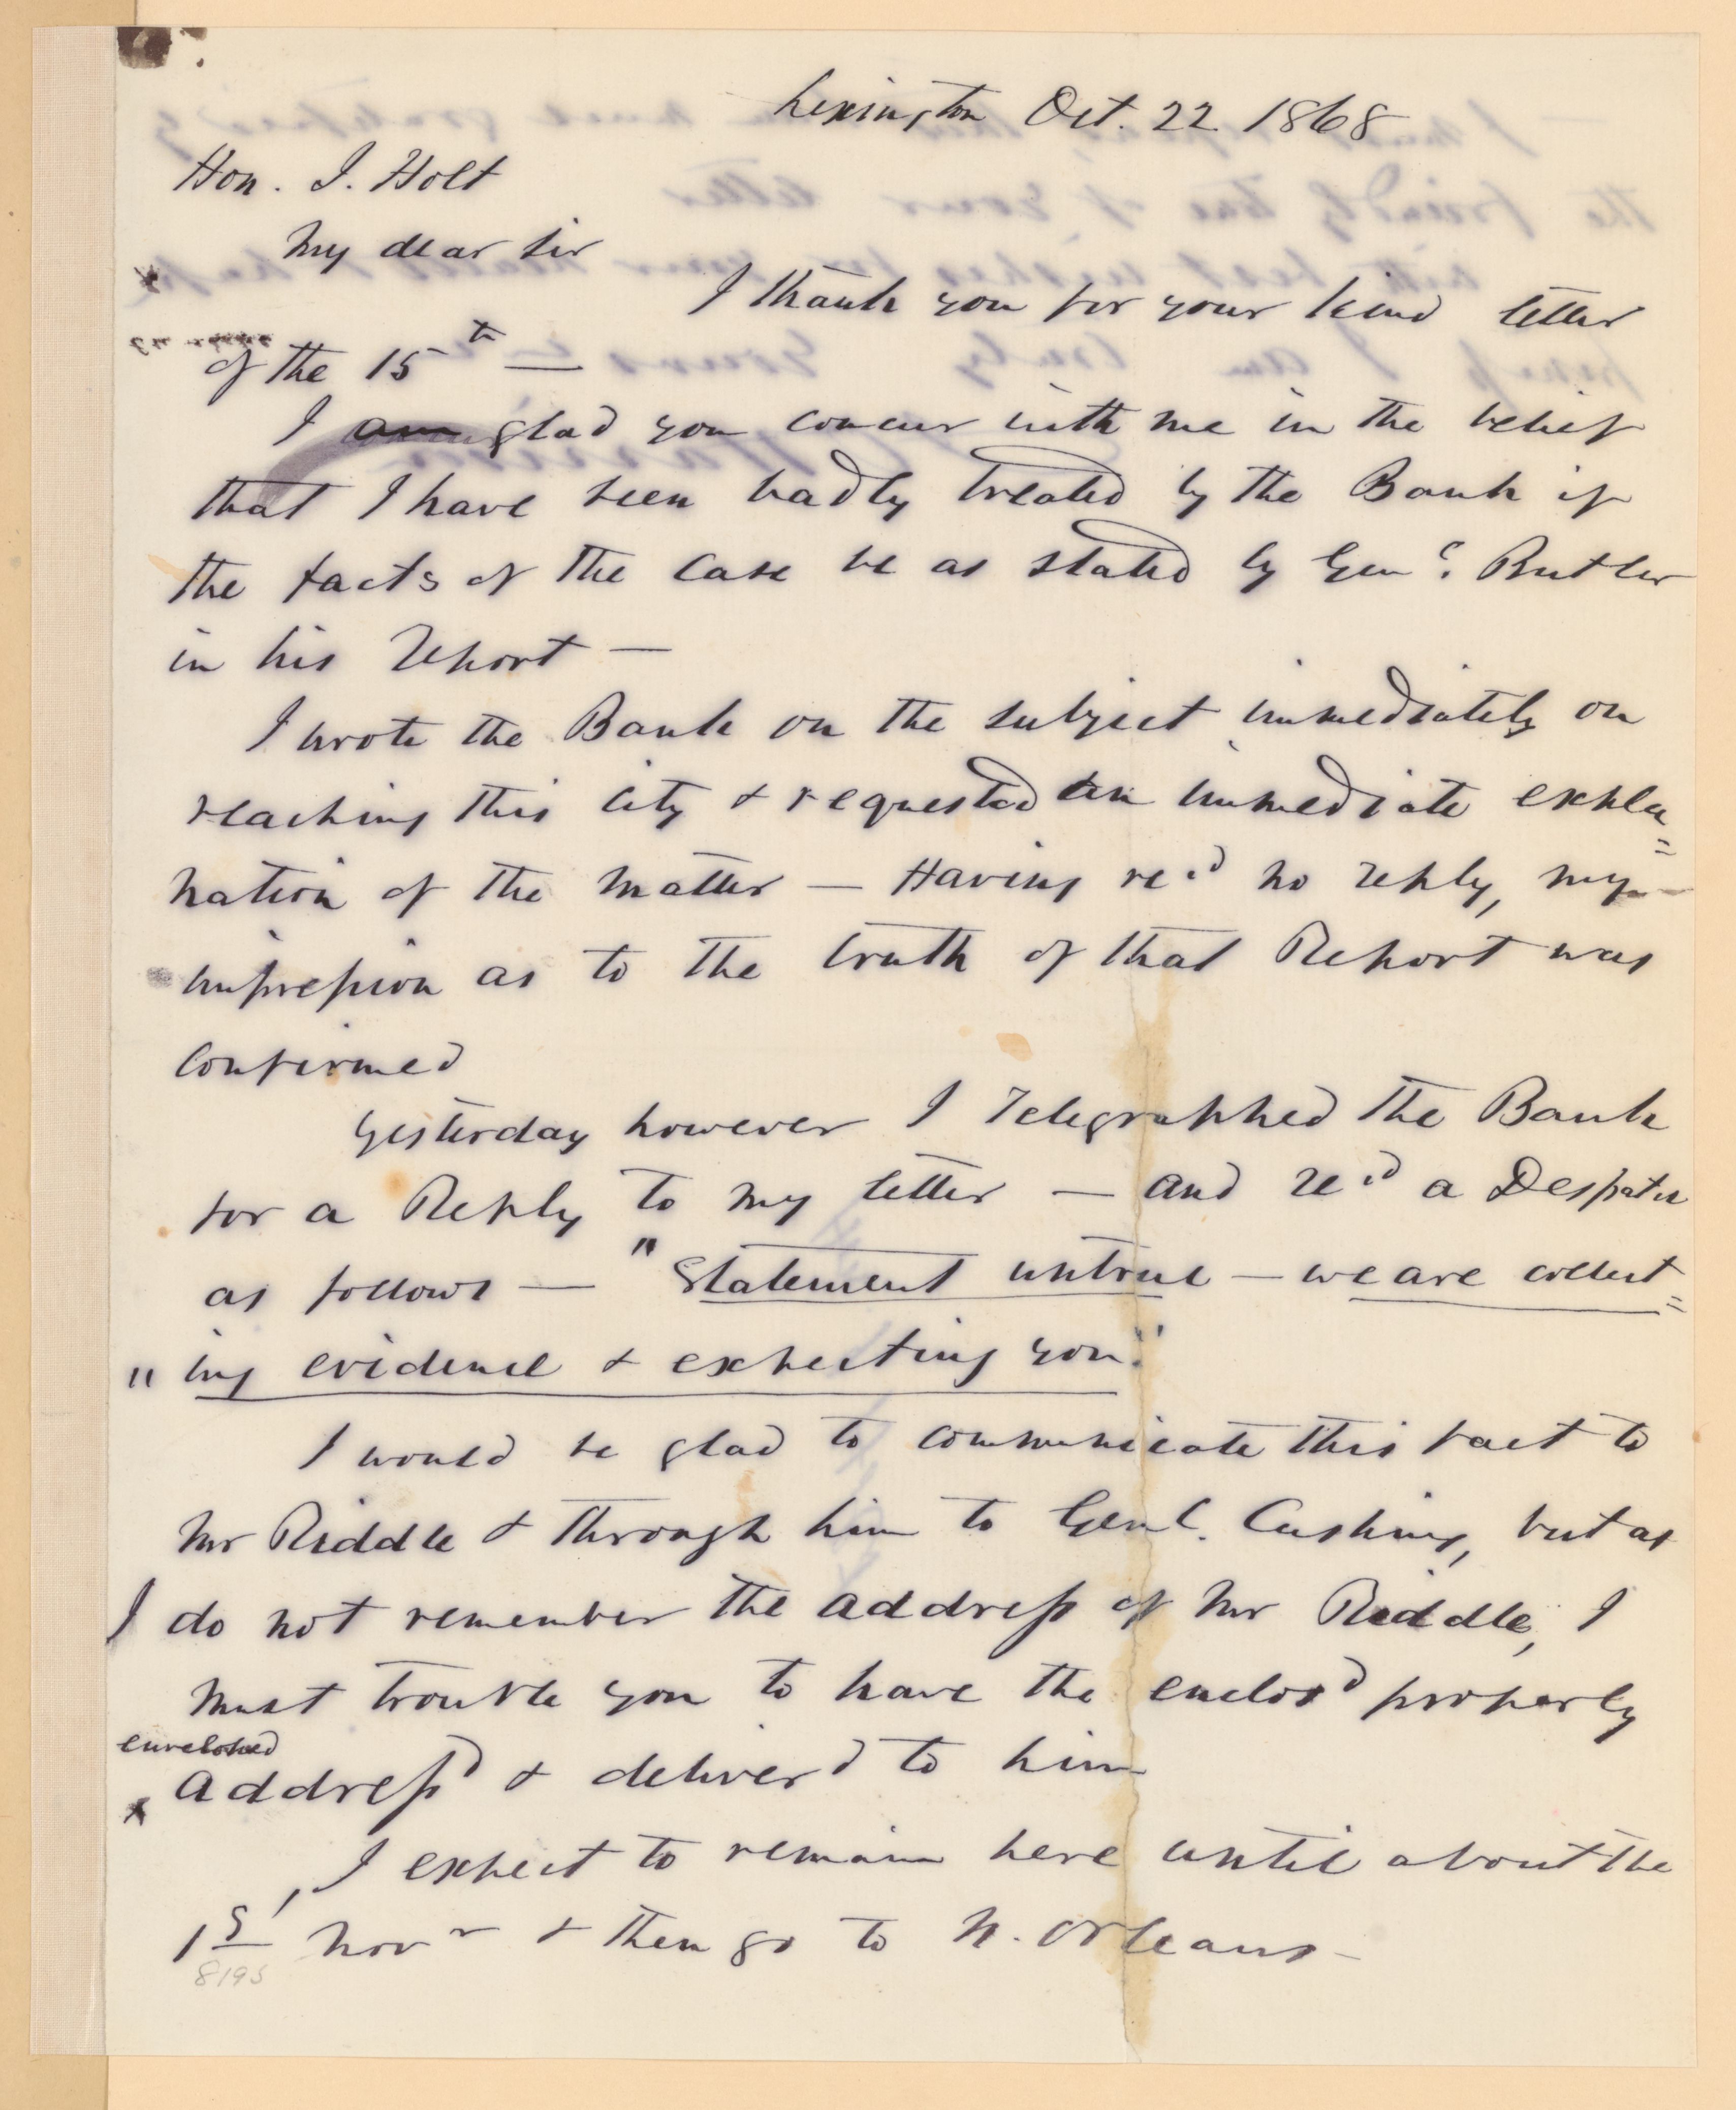 Lexington Oct. 22 1868
Hon. J. Holt
My dear Sir
I thank you for your kind letter
of the 15th —
I am glad you concur with me in the belief
that I have been badly treated by the Bank if
the facts of the case be as stated by Genl. Butler
in his report —
I wrote the Bank on the subject immediately on
reaching this city & requested an immediate expla=
nation of the matter — Having recd no reply, my
impression as to the truth of that Report was
confirmed
Yesterday however I Telegraphed the Bank
for a Reply to my letter — and recd a Despatch
as follows — "Statement untrue — we are collect=
"ing evidence & expecting you."
I would be glad to communicate this fact to
Mr Riddle & through him to Genl. Cushing, but as
I do not remember the address of Mr Riddle, I
must trouble you to have the enclosd properly
enveloped
x Addressd & deliverd to him
I expect to remain here until about the
1st Novr & then go to N. Orleans —
8195